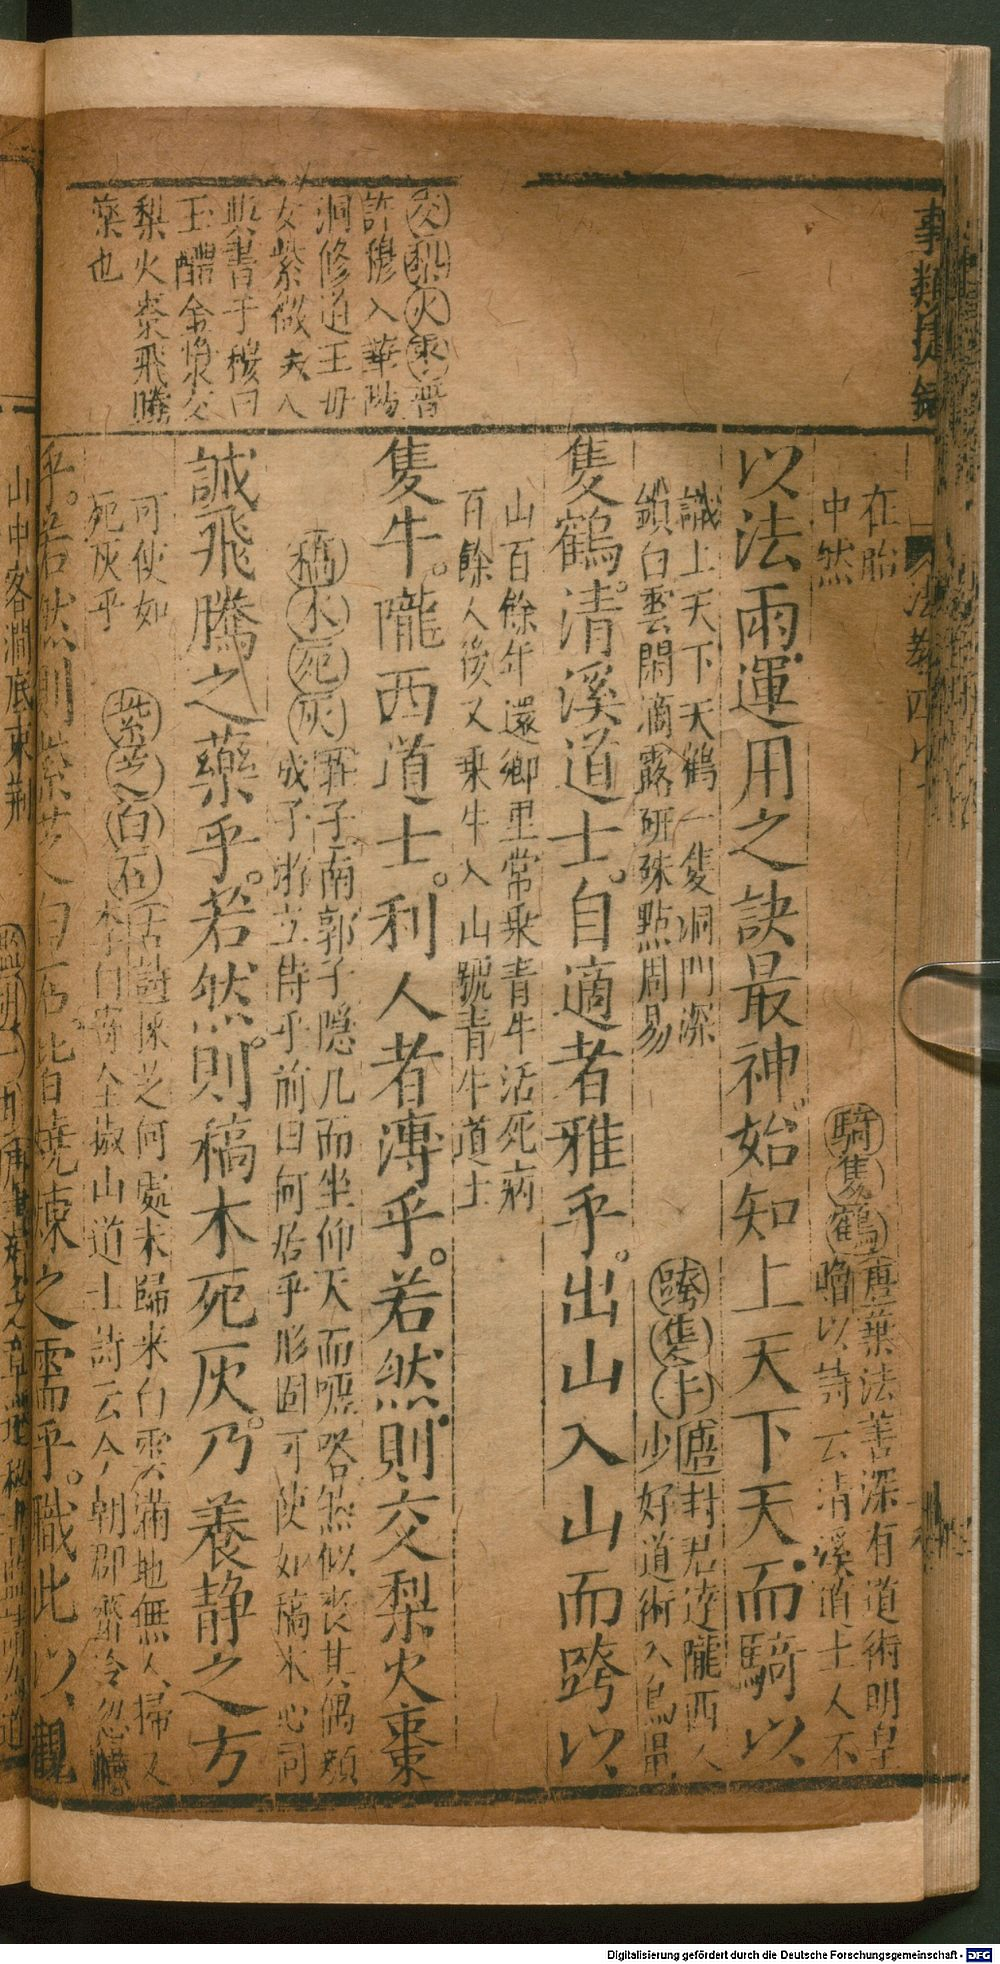 事類捷錄
交梨火棗晋
許穆入華陽
洞修道王母
女紫微夫人
與書于穆曰
玉醴金漿交
梨火棗飛騰
藥也
在胎
中然
騎隻鶴唐葉法善深有道術明皇
嘗以詩云清溪道士人不
以法雨運用之訣最神始知上天下天而騎以
識上天下天鶴一隻洞門深
鎖白雲閑滴露研硃點周易
跨隻牛盧封君達隴西人
少好道術入鳥鼠
隻鶴清溪道士自適者雅乎出山入山而跨以
山百餘年還鄉里常乘青牛活死病
百餘人後又乘牛入山號青牛道士
隻牛隴西道士利人者溥乎若然則交梨火棗
稿木死灰莊子南郭子隱几而坐仰天而噓嗒然似丧其偶顏
成子游立侍乎前曰何居乎形固可使如稿木心同
誠飛騰之藥乎若然則稿木死灰乃養静之方
可使如
死灰乎
紫芝白石古詩採芝何處未歸来白雲滿地無人掃又
李白寄全椒山道士詩云今朝郡齋冷忽憶
乎若然則紫芝白石皆燒煉之需乎職此以觀
山中客澗底束荆
Digitalisierung gefördert durch die Deutsche Forschungsgemeinschaft - DFG